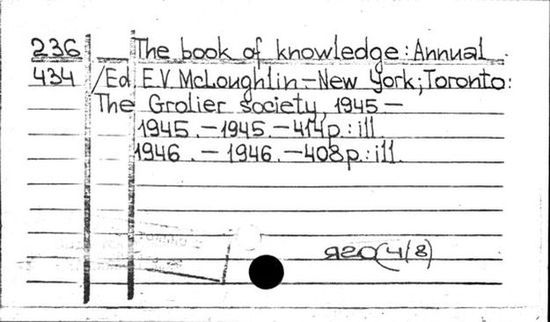 236 The book of knowledge: Annual.
434 /Ed. E.V. McLoughlin.–New York; Toronto:
The Grolier society, 1945 –
1945. – 1945. – 414p.: ill.
1946. – 1946. – 408p.: ill.
яго(4/8)